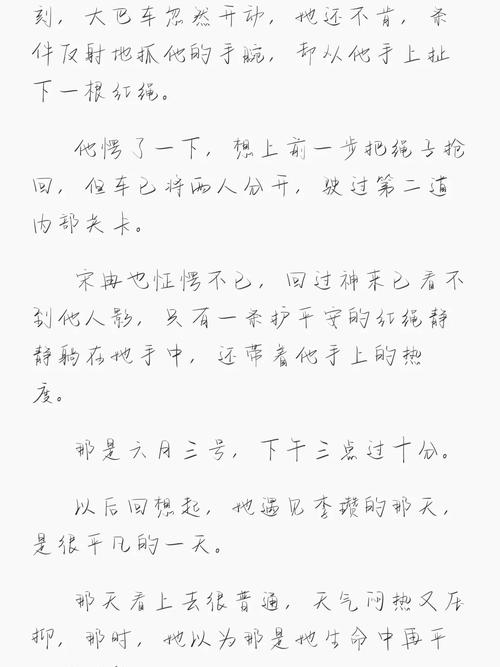 刻，大巴车忽然开动，她还不肯，条
件反射地抓他的手腕，却从他手上扯
下一根红绳。
他愣了一下，想上前一步把绳子抢
回，但车已将两人分开，驶过第二道
内部关卡。
宋冉也怔愣不已，回过神来已看不
到他人影，只有一条护平安的红绳静
静躺在她手中，还带着他手上的热
度。
那是六月三号，下午三点过十分。
以后回想起，她遇见李瓒的那天，
是很平凡的一天。
那天看上去很普通，天气闷热又压
抑，那时，她以为那是她生命中再平